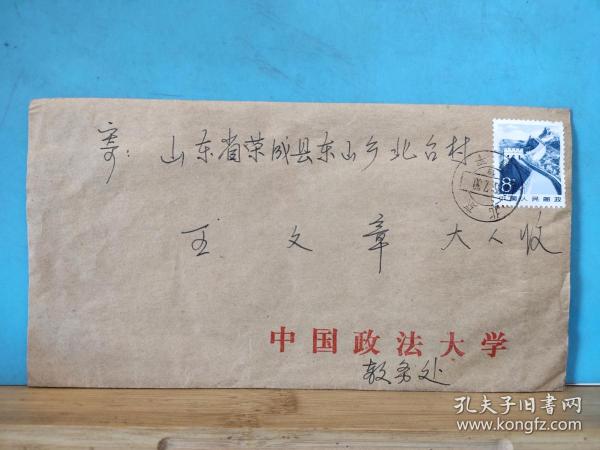 寄：山东省荣成县东山乡北台村
8
中国人民邮政
北京
王文章大人收
中国政法大学
教务处
孔夫子旧书网
www.kongfz.com